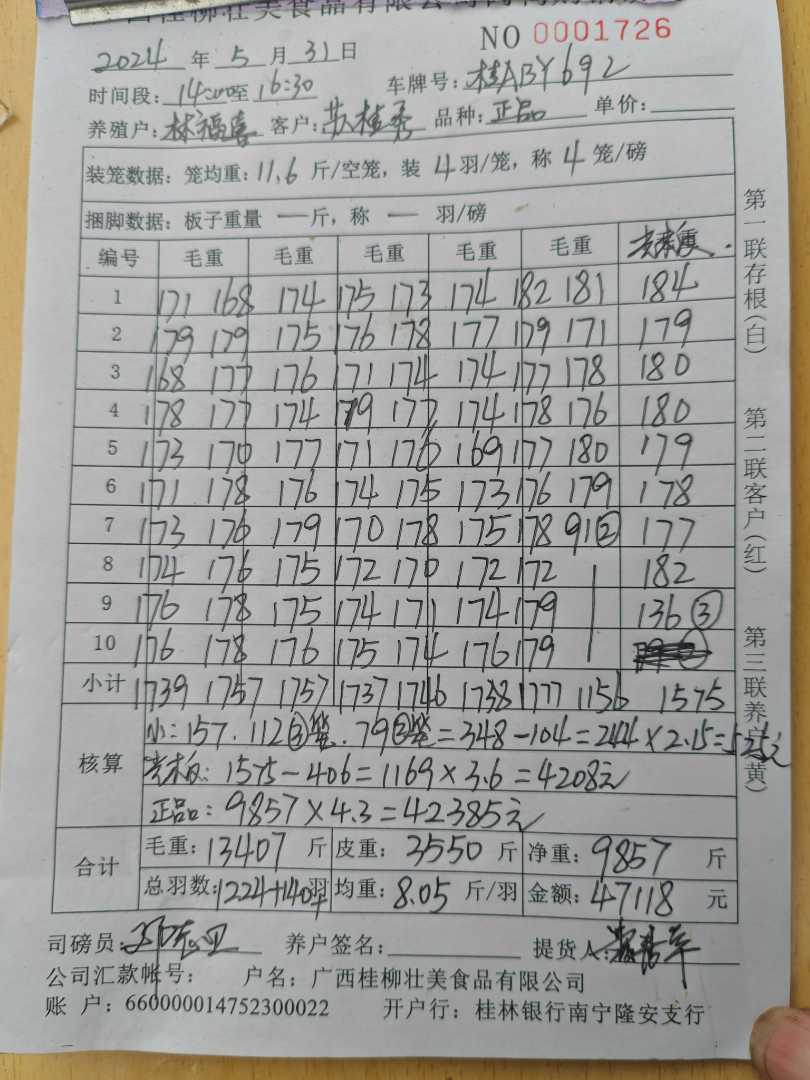 西桂柳壮美食品有限公司
NO 0001726
2024 年 5 月 31 日
时间段: 14:00至 16:30 车牌号: 桂ABY692
养殖户: 林福喜 客户: 苏桂秀 品种: 正品 单价:
装笼数据: 笼均重: 11.6 斤/空笼, 装 4 羽/笼, 称 4 笼/磅
捆脚数据: 板子重量 — 斤, 称 — 羽/磅
编号 毛重 毛重 毛重 毛重 毛重
1 171 168 174 175 173 174 182 181 184
2 179 179 175 176 178 177 179 171 179
3 168 177 176 171 174 174 177 178 180
4 178 177 174 179 177 174 178 176 180
5 173 170 177 171 176 169 177 180 179
6 171 178 176 174 175 173 176 179 178
7 173 176 179 170 178 175 178 91② 177
8 174 176 175 172 170 172 172 182
9 176 178 175 174 171 174 179 136③
10 176 178 176 175 174 176 179
小计 1739 1757 1757 1737 1746 1738 1777 1156 1575
核算
小: 157. 112③笼. 79②笼=348-104=244×2.15=525元
老木板: 1575-406=1169×3.6=4208元
正品: 9857×4.3=42385元
合计
毛重: 13407 斤 皮重: 3550 斤 净重: 9857 斤
总羽数: 1224+140羽 均重: 8.05 斤/羽 金额: 47118 元
司磅员: 养户签名: 提货人:
公司汇款帐号: 户名: 广西桂柳壮美食品有限公司
账 户: 660000014752300022 开户行: 桂林银行南宁隆安支行
第一联存根(白) 第二联客户(红) 第三联养户(黄)